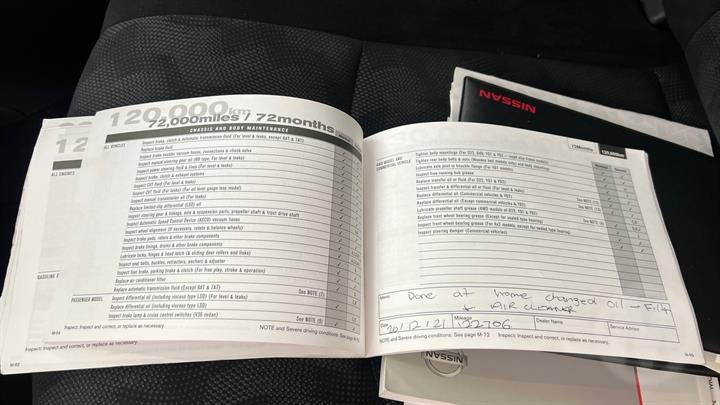 120,000km
72,000miles / 72months
CHASSIS AND BODY MAINTENANCE
ALL VEHICLES
Inspect brake, clutch & automatic transmission fluid (For level & leaks, except RAT & TAT)
Replace brake fluid
Inspect brake booster vacuum hoses, connections & check valve
Inspect manual steering gear oil (RB type, For level & leaks)
Inspect power steering fluid & lines (For level & leaks)
Inspect brake, clutch & exhaust systems
Inspect CVT fluid (For level & leaks)
Inspect CVT fluid (For leaks) (For oil level gauge less model)
Inspect manual transmission oil (For leaks)
Replace limited-slip differential (LSD) oil
Inspect steering gear & linkage, axle & suspension parts, propeller shaft & front drive shaft
Inspect Automatic Speed Control Device (ASCD) vacuum hoses
Inspect wheel alignment (If necessary, rotate & balance wheels)
Inspect brake pads, rotors & other brake components
Inspect brake linings, drums & other brake components
Lubricate locks, hinges & hood latch (& sliding door rollers and links)
Inspect seat belts, buckles, retractors, anchors & adjuster
Inspect foot brake, parking brake & clutch (For free play, stroke & operation)
Replace air conditioner filter
Replace automatic transmission fluid (Except RAT & TAT) See NOTE (7)
PASSENGER MODEL
Inspect differential oil (including viscous type LSD) (For level & leaks)
Replace differential oil (including viscous type LSD)
Inspect brake lamp & cruise control switches (V36 sedan) See NOTE (9)
NOTE and Severe driving conditions: See page M-72
Inspect: Inspect and correct, or replace as necessary.
M-94
12
ALL ENGINES
GASOLINE E
Inspect: Inspect and correct, or replace as necessary.
M-92
NISSAN
72months
120,000km
4WD MODEL AND
COMMERCIAL VEHICLE
Inspect free-running hub grease
Replace transfer oil or fluid (For D22, Y61 & Y62)
Inspect transfer & differential oil or fluid (For level & leaks)
Replace differential oil (Commercial vehicles & Y62)
Replace differential oil (Except commercial vehicles & Y62)
Lubricate propeller shaft grease (4WD models of D22, Y61 & Y62)
Replace front wheel bearing grease (Except for sealed type bearing)
Inspect front wheel bearing grease (For 4x2 models, except for sealed type bearing)
Inspect steering damper (Commercial vehicles)
Memo
Done at home changed Oil - Filt
+ AIR CLEANER
Date
20/12/21
Mileage
122706
Dealer Name
Service Advisor
NOTE and Severe driving conditions: See page M-72
Inspect: Inspect and correct, or replace as necessary.
M-95
NISSAN